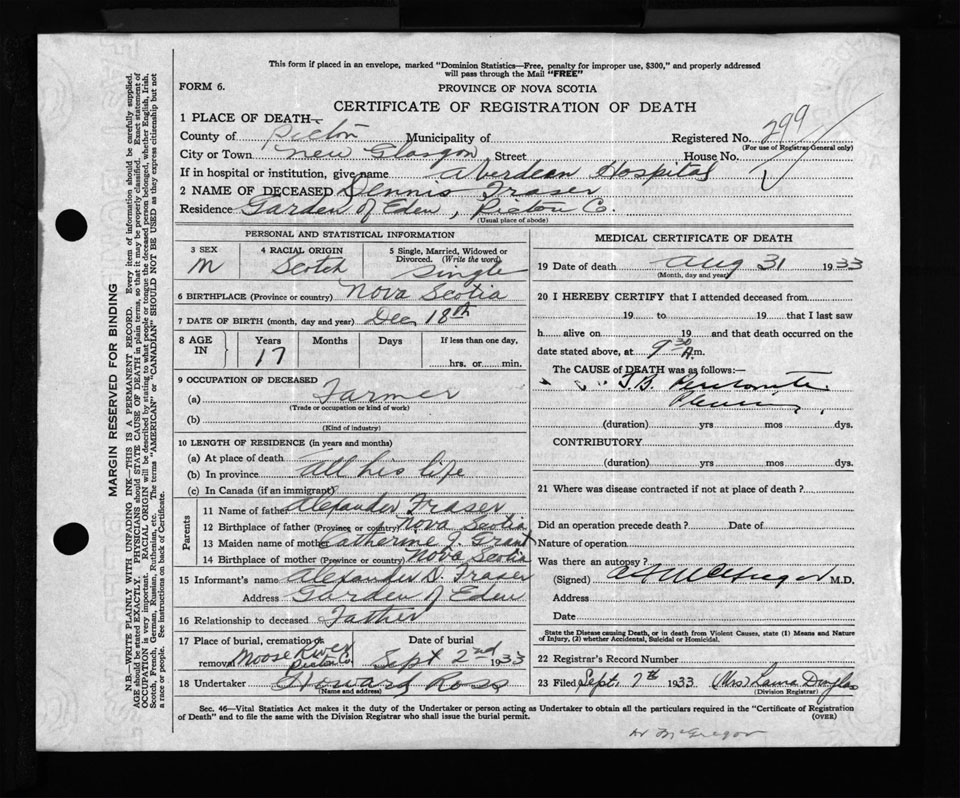 This form if placed in an envelope, marked "Dominion Statistics—Free, penalty for improper use, $300," and properly addressed
will pass through the Mail "FREE"
FORM 6.
PROVINCE OF NOVA SCOTIA
CERTIFICATE OF REGISTRATION OF DEATH
1 PLACE OF DEATH—
County of Pictou Municipality of Registered No. 299
(For use of Registrar General only)
City or Town New Glasgow Street House No.
If in hospital or institution, give name Aberdean Hospital
2 NAME OF DECEASED Dennis Fraser
Residence Garden of Eden, Pictou Co.
(Usual place of abode)
PERSONAL AND STATISTICAL INFORMATION
3 SEX 4 RACIAL ORIGIN 5 Single, Married, Widowed or
Divorced. (Write the word)
M Scotch Single
6 BIRTHPLACE (Province or country) Nova Scotia
7 DATE OF BIRTH (month, day and year) Dec 18th
8 AGE IN Years Months Days If less than one day,
17 hrs. or min.
9 OCCUPATION OF DECEASED
(a) Farmer
(Trade or occupation or kind of work)
(b)
(Kind of industry)
10 LENGTH OF RESIDENCE (in years and months)
(a) At place of death
(b) In province all his life
(c) In Canada (if an immigrant)
Parents
11 Name of father Alexander Fraser
12 Birthplace of father (Province or country) Nova Scotia
13 Maiden name of mother Catherine J. Grant
14 Birthplace of mother (Province or country) Nova Scotia
15 Informant's name Alexander D. Fraser
Address Garden of Eden
16 Relationship to deceased Father
17 Place of burial, cremation or Date of burial
removal Moose River Pictou Co Sept 2nd 1933
18 Undertaker Howard Ross
(Name and address)
MEDICAL CERTIFICATE OF DEATH
19 Date of death Aug 31 1933
(Month, day and year)
20 I HEREBY CERTIFY that I attended deceased from
19 to 19 that I last saw
h alive on 19 and that death occurred on the
date stated above, at 9 30 A.m.
The CAUSE of DEATH was as follows:—
T.B. Peritonitis
(duration) yrs mos dys.
CONTRIBUTORY
(duration) yrs mos dys.
21 Where was disease contracted if not at place of death?
Did an operation precede death? Date of
Nature of operation
Was there an autopsy?
(Signed) McGregor M.D.
Address
Date
State the Disease causing Death, or in death from Violent Causes, state (1) Means and Nature
of Injury, (2) whether Accidental, Suicidal or Homicidal.
22 Registrar's Record Number
23 Filed Sept, 7th 1933 (Mrs) Laura Douglas
(Division Registrar)
Sec. 46—Vital Statistics Act makes it the duty of the Undertaker or person acting as Undertaker to obtain all the particulars required in the "Certificate of Registration
of Death" and to file the same with the Division Registrar who shall issue the burial permit. (OVER)
Dr McGregor
MARGIN RESERVED FOR BINDING
N.B.—WRITE PLAINLY WITH UNFADING INK—THIS IS A PERMANENT RECORD. Every item of information should be carefully supplied.
AGE should be stated EXACTLY. PHYSICIANS should STATE CAUSE OF DEATH in plain terms, so that it may be properly classified. Exact statement of
OCCUPATION is very important. RACIAL ORIGIN will be described by stating to what people or tongue the deceased person belonged, whether English, Irish,
Scotch, French, German, Russian, Ruthenian, etc. The terms "AMERICAN" or "CANADIAN" SHOULD NOT BE USED as they express citizenship but not
a race or people. See instructions on back of Certificate.